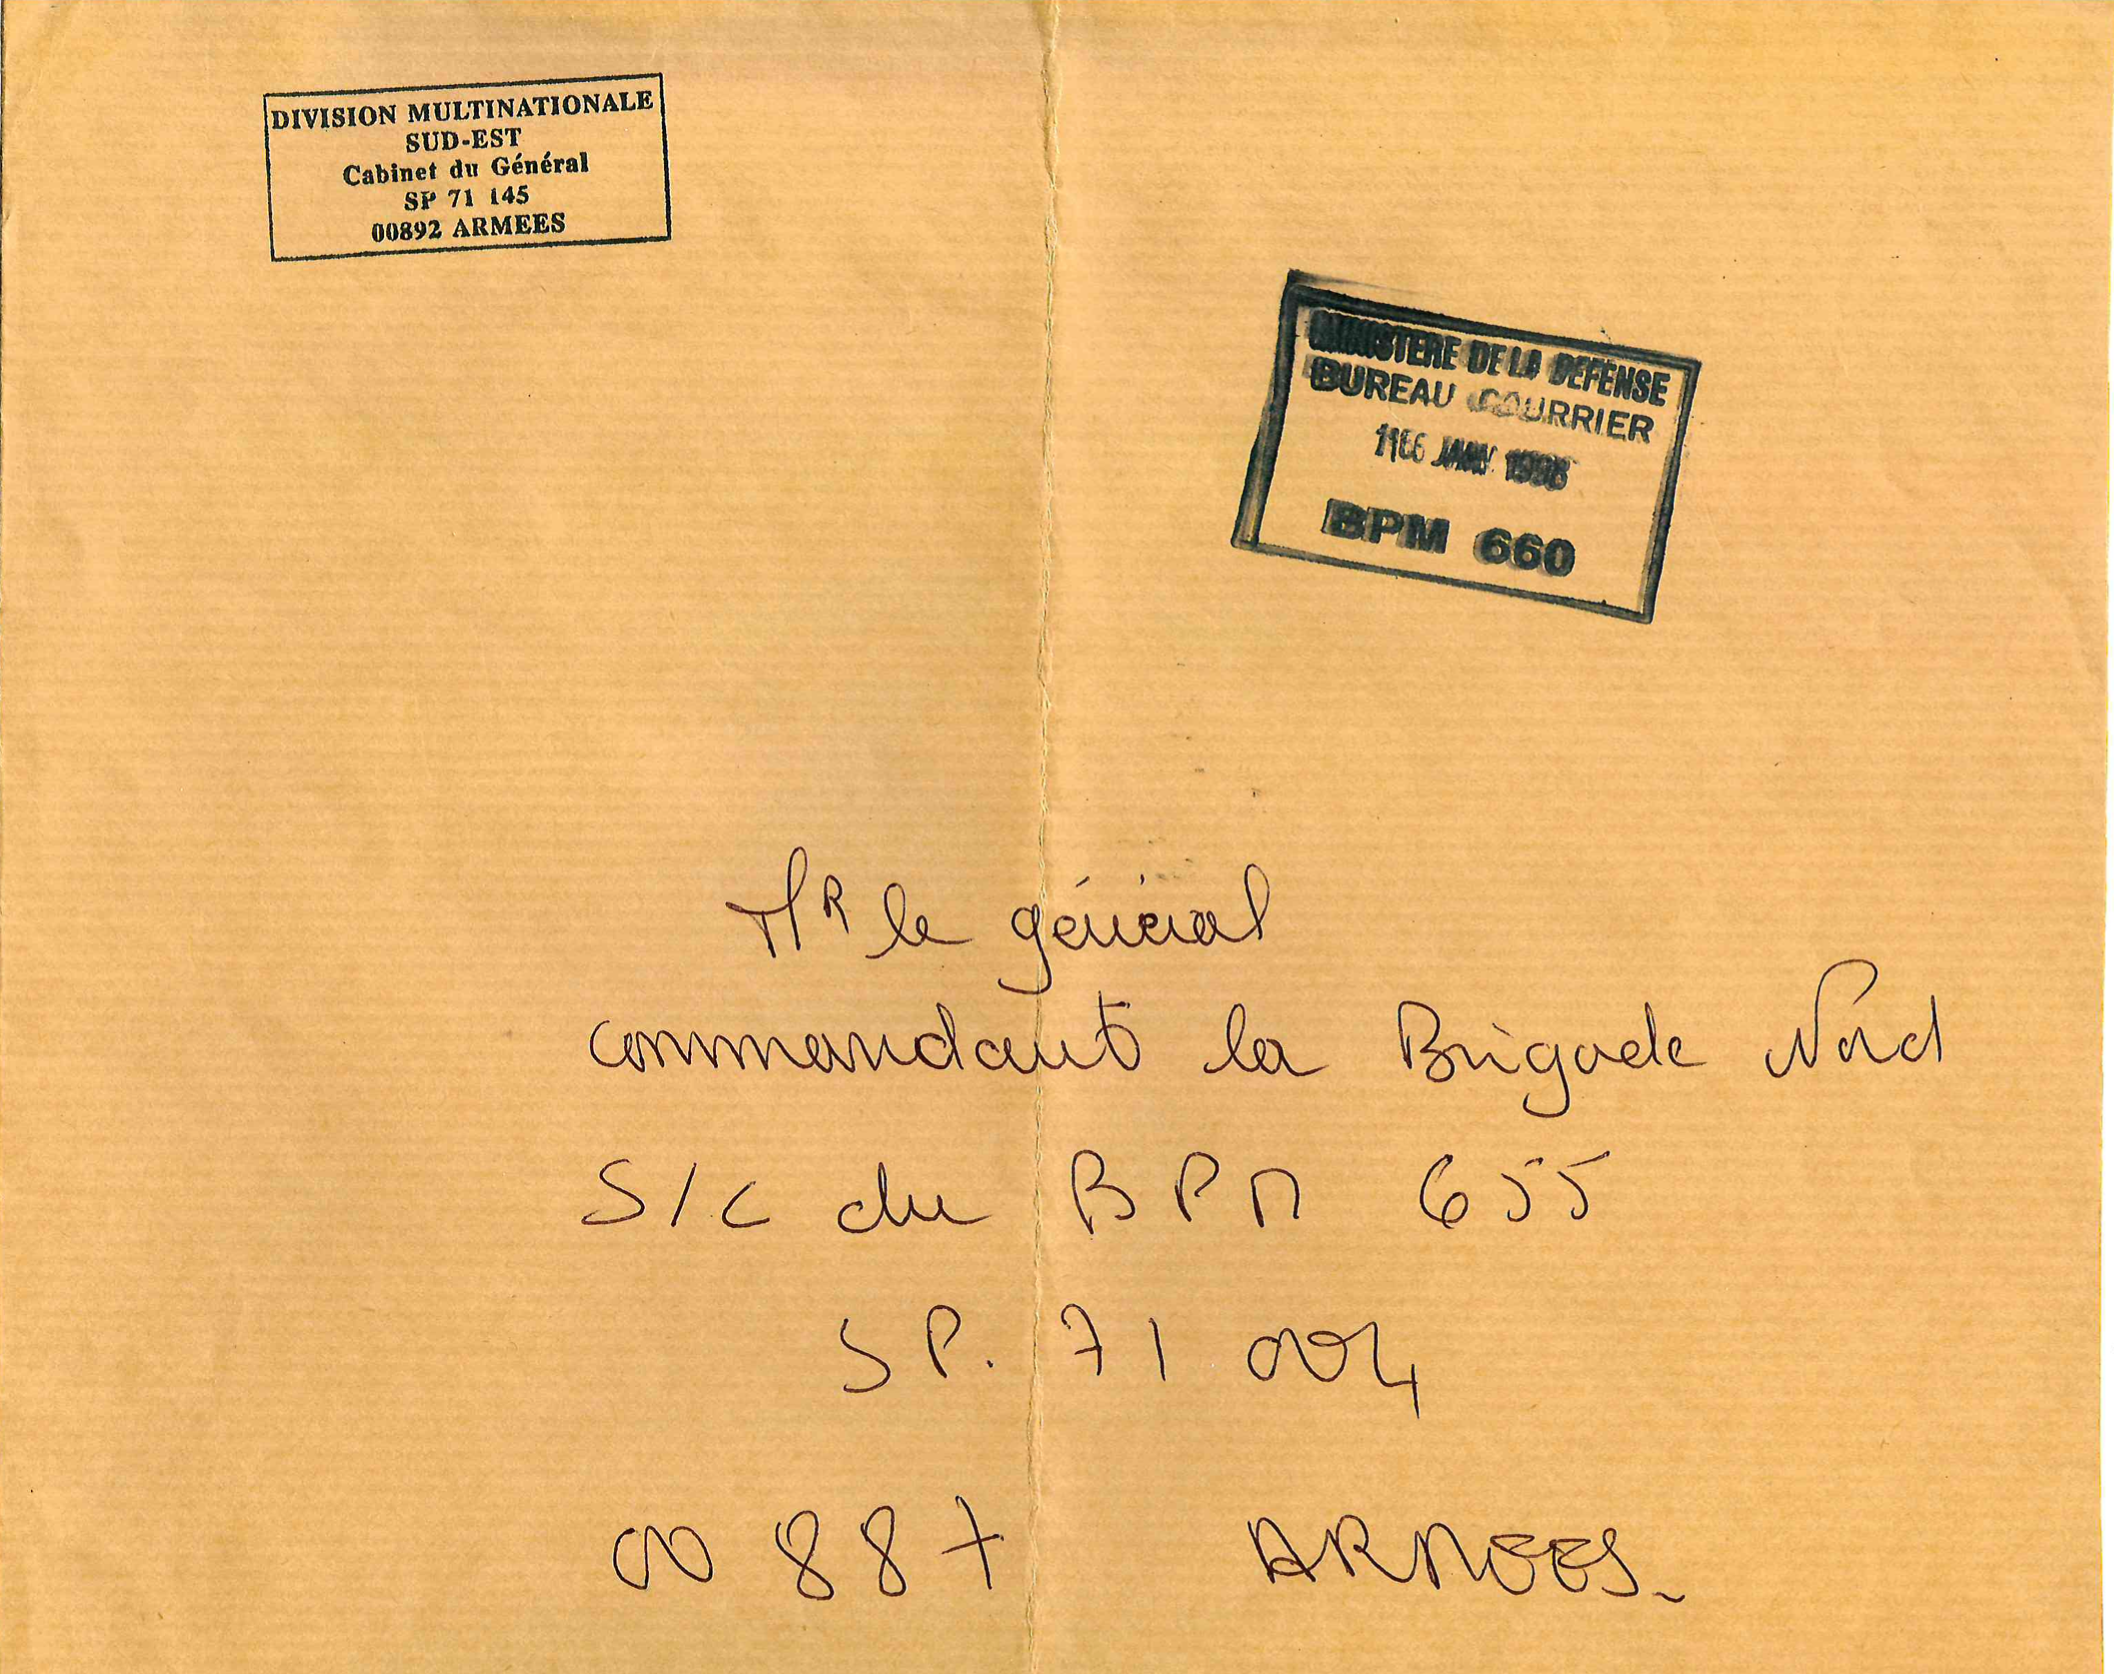 DIVISION MULTINATIONALE
SUD-EST
Cabinet du Général
SP 71 145
00892 ARMEES
MINISTERE DE LA DEFENSE
BUREAU COURRIER
JANV.
BPM 660
MR le général
commandant la Brigade Nord
S/C du BPM 655
SP. 71 004
00 887 ARMEES.